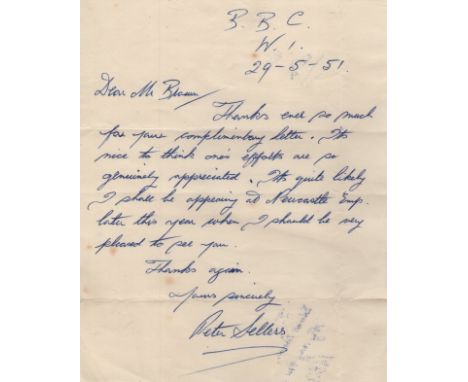 B. B. C.
W. 1.
29-5-51.
Dear Mr Brown/
Thanks ever so much
for your complimentary letter. Its
nice to think one's efforts are so
genuinely appreciated. Its quite likely
I shall be appearing at Newcastle Emp.
later this year when I should be very
pleased to see you.
Thanks again.
Yours sincerely
Peter Sellers